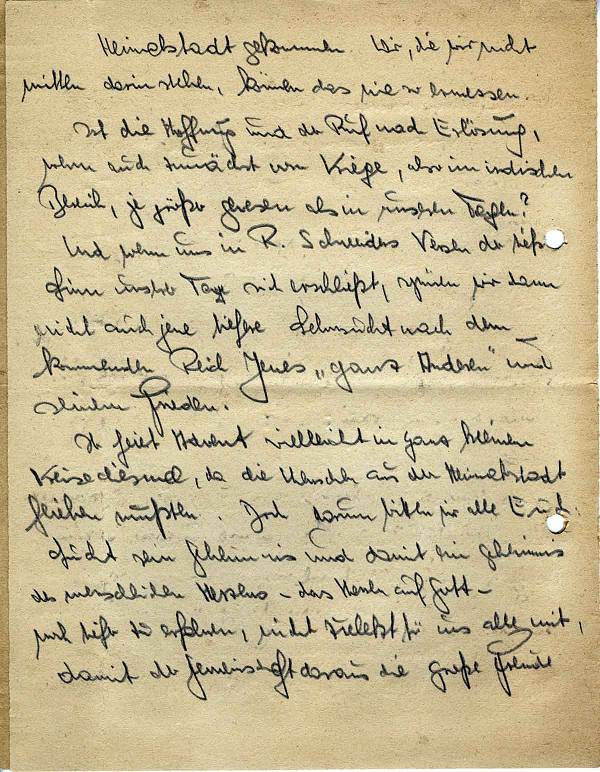 Heimatstadt gekommen. Wir, die wir nicht
mitten darin stehen, können das nie so ermessen.
Ist die Hoffnung und der Ruf nach Erlösung,
wenn auch zunächst vom Kriege, also im irdischen
Bereich, je größer gewesen als in unseren Tagen?
Und wenn uns in R. Schneiders Versen der tiefe
Sinn unserer Tage sich erschließt, spüren wir dann
nicht auch jene tiefere Sehnsucht nach dem
kommenden Reich Jenes „ganz Anderen" und
seinem Frieden.
Ihr feiert Advent vielleicht in ganz kleinem
Kreise diesmal, da die Menschen aus der Heimatstadt
fliehen mußten. Doch darum bitten wir alle Euch
sein Geheimnis und damit ein Geheimnis
des menschlichen Herzens – das Harren auf Gott –
noch tiefer zu erfahren, nicht zuletzt für uns alle mit,
damit der Gemeinschaft daraus die große Freude